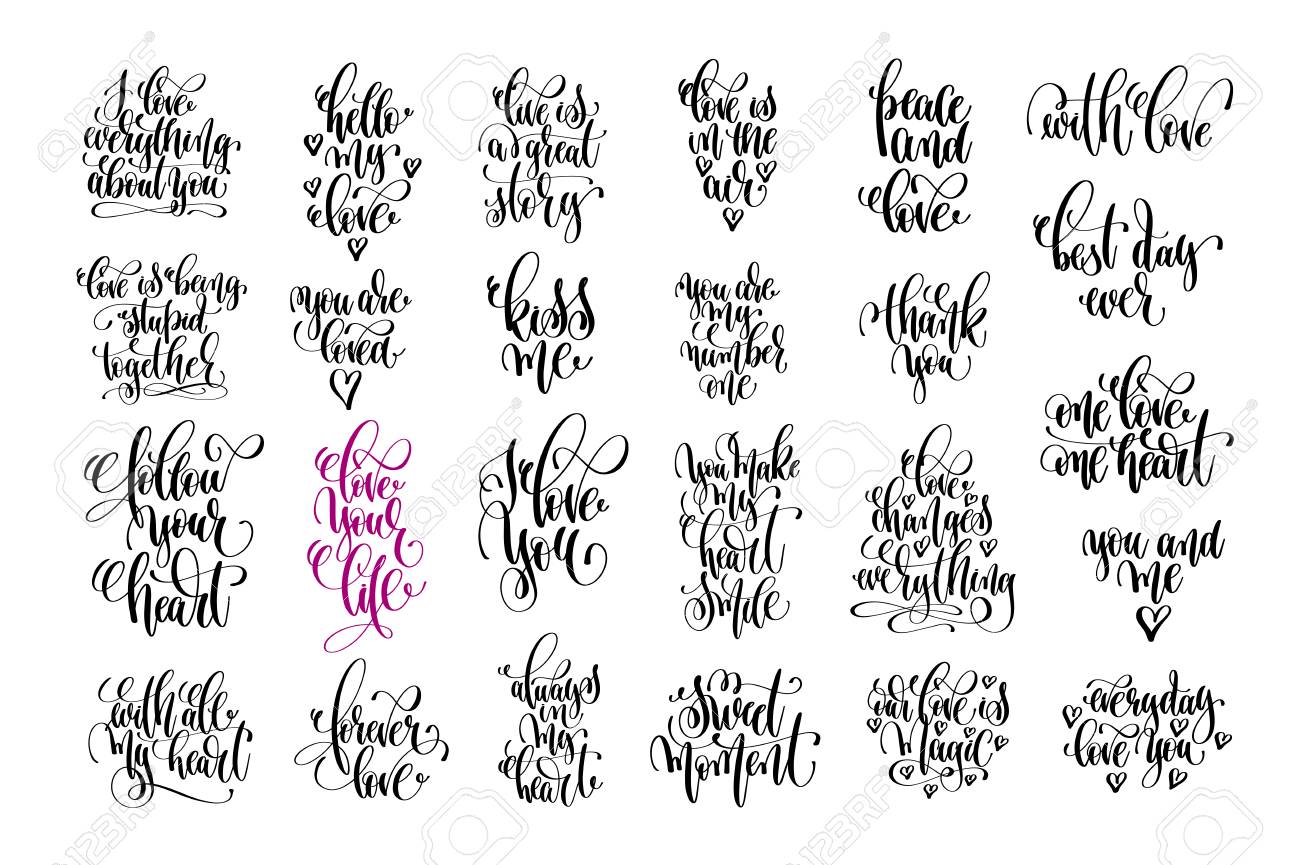 I love
everything
about you
hello
my
love
live is
a great
story
love is
in the
air
peace
and
love
with love
best day
ever
love is being
stupid
together
you are
loved
kiss
me
you are
my
number
one
thank
you
one love
one heart
follow
your
heart
love
your
life
I love
you
you make
my
heart
smile
love
changes
everything
you and
me
with all
my heart
forever
love
always
in
my
heart
sweet
moment
our love is
magic
everyday
love you
123RF